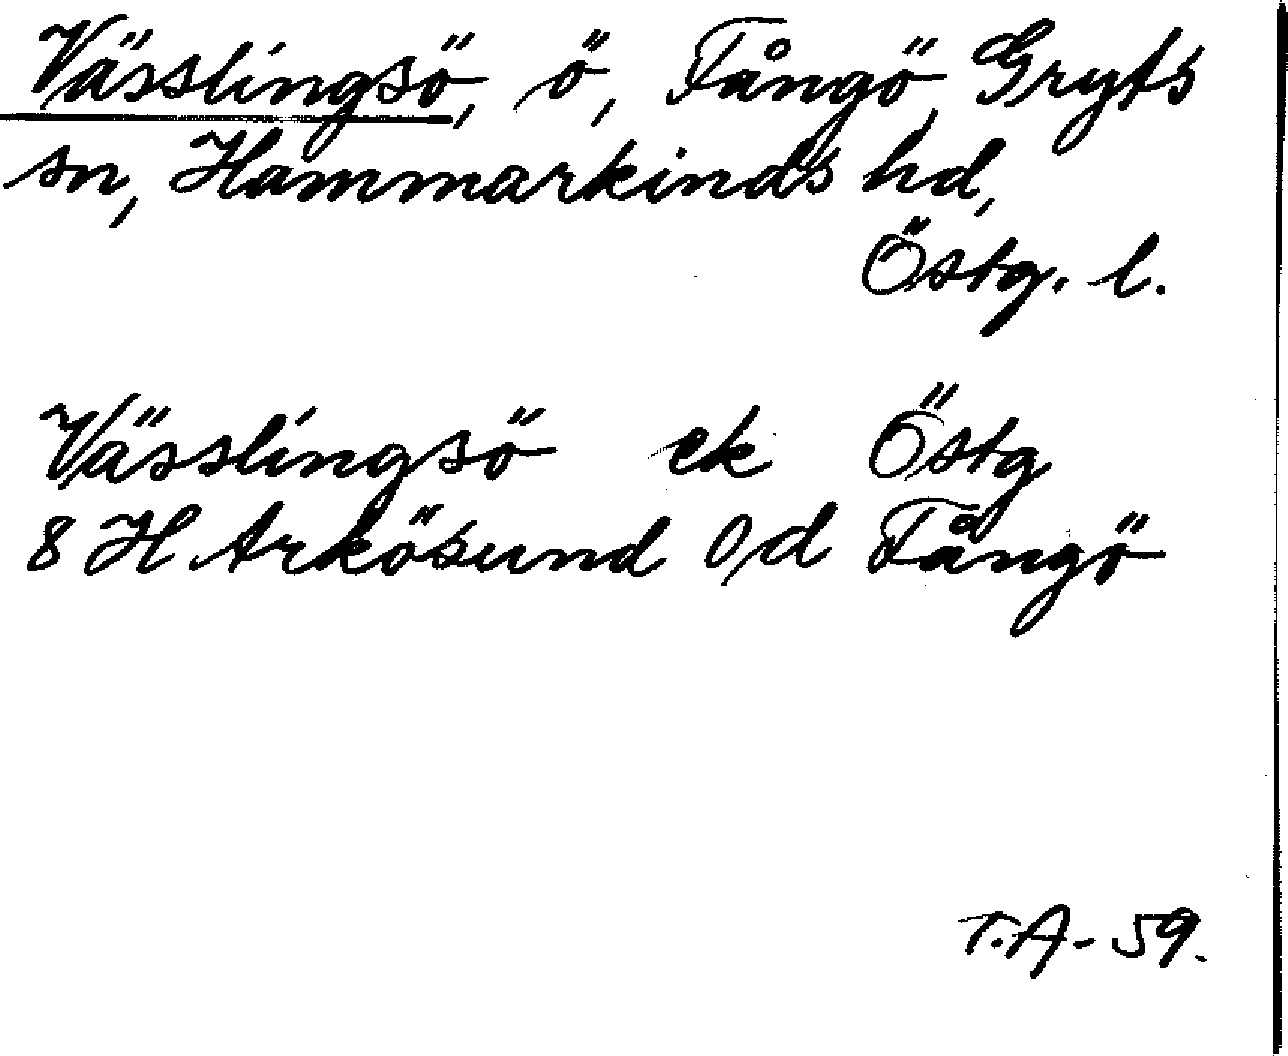 Vässlingsö, ö, Fångö, Gryts
sn, Hammarkinds hd,
Östg. l.
Vässlingsö ek Östg
8 H Arkösund 0/d Fångö
T.A - 59.